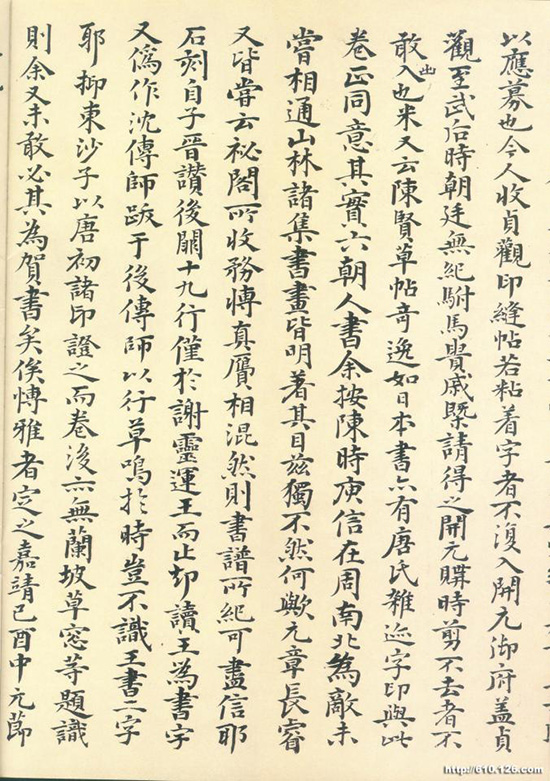 以應募也今人收貞觀印縫帖若粘着字者不復入開元御府蓋貞
觀至武后時朝廷無紀駙馬貴戚槩請得之開元購時剪不去者不
敢入出也米又云陳賢草帖奇逸如日本書亦有唐氏雜迹字印與此
卷正同意其實六朝人書余按陳時庾信在周南北為敵未
嘗相通山林諸集書畫皆明著其目茲獨不然何歟元章長睿
又皆嘗云祕閣所收務博真贗相混然則書譜所紀可盡信耶
石刻自子晉讚後闕十九行僅於謝靈運王而止却讀王為書字
又偽作沈傳師跋于後傳師以行草鳴於時豈不識王書二字
耶抑東沙子以唐初諸印證之而卷後亦無蘭坡草窓等題識
則余又未敢必其為賀書矣俟博雅者定之嘉靖己酉中元節
http://610.126.com